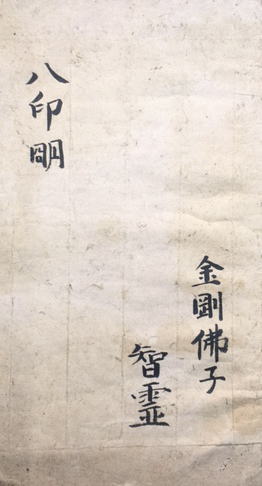 八印明
金剛佛子
智霊